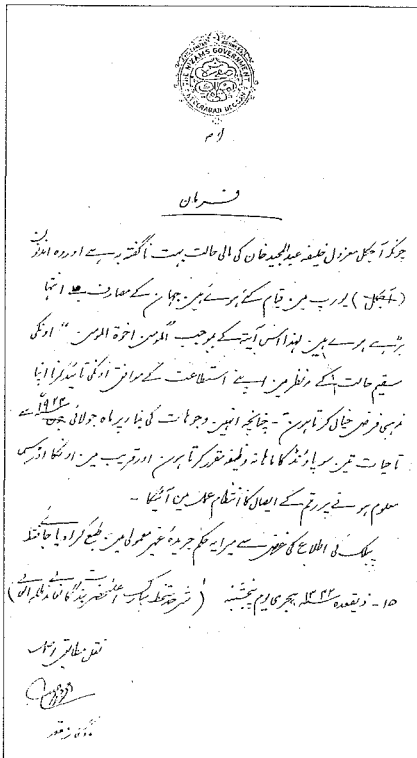 THE NIZAM'S GOVERNMENT
HYDERABAD DECCAN
فرمان
چونکہ آجکل معزول خلیفہ عبدالمجید خان کی مالی حالت بہت ناگفتہ بہ ہے اور وہ
(آجکل) یورپ مین قیام کئے ہوے ہین جہان کے مصارف بے انتہا
بڑہے ہوے ہین لہذا اس آیتہ کے بموجب "المومن اخوة المومن" اونکی
سقیم حالت کے مدنظر مین اپنے استطاعت کے موافق اونکی تائید کرنا اپنا
مذہبی فرض خیال کرتا ہون - چنانچہ انہین وجوہات کی بنا پر ماہ جولائی ۱۹۲۴ سے
تاحیات تین سو پاونڈ کا ماہانہ وظیفہ مقرر کرتا ہون اور قریب مین اونکا اڈرس
معلوم ہونے پر رقم کے ایصال کا انتظام عمل مین آئیگا -
پبلک کی اطلاع کی غرض سے میرا یہ حکم جریدہ غیر معمولی مین طبع کرا دیا جائے فقط
۱۵ - ذیقعدہ سنہ ۱۳۴۲ ہجری یوم پنجشنبہ (شرحدستخط مبارک اعلیٰحضرت بندگانعالی
نقل مطابق اصل